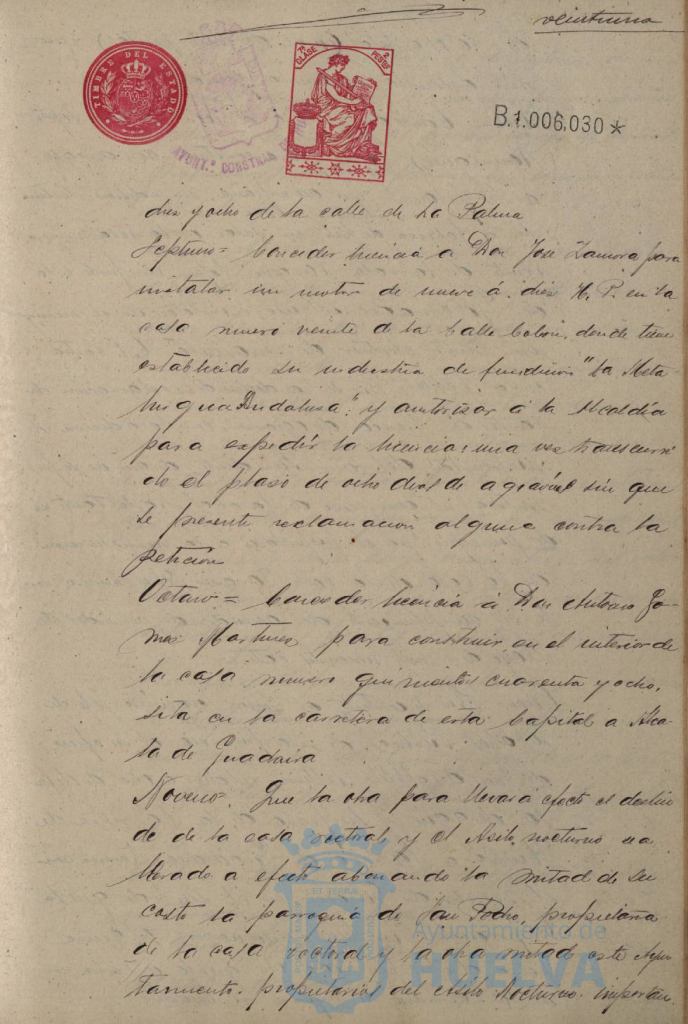 veintiuno
TIMBRE DEL ESTADO
AYUNT.º CONSTITU
7ª CLASE 2 PESETAS
B.1.006,030 *
diez y ocho de la calle de La Palma
Septimo = Conceder licencia a Don José Zamora para
instalar un motor de nueve á diez H. P. en la
casa numero veinte de la Calle Colon, donde tiene
establecido su industria de fundicion "La Meta-
lurgica Andalusa": y autorizar á la Alcaldía
para expedir la licencia una vez transcurri
do el plaso de ocho dias de agravios sin que
se presente reclamacion alguna contra la
petición
Octavo = Conceder licencia á Don Antonio Go-
mez Martinez para construir en el interior de
la casa numero quinientos cuarenta y ocho,
sita en la carretera de esta Capital a Alca-
lá de Guadaira
Noveno. Que la obra para llevar á efecto el deslin
de de la casa rectoral y el Asilo nocturno sea
llevado a efecto abonando la mitad de su
costo la parroquia de San Pedro, propietaria
de la casa rectoral y la otra mitad este Ayun
tamiento. propietarios del Asilo Nocturno. importan
Ayuntamiento de
HUELVA